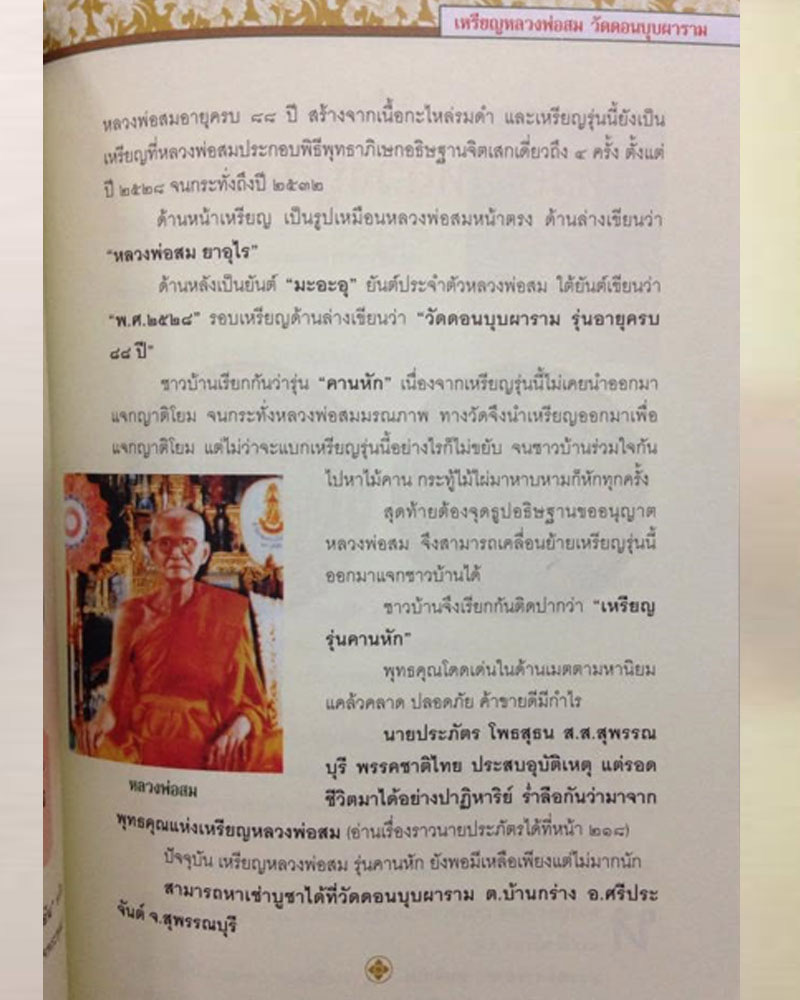 เหรียญหลวงพ่อสม วัดดอนบุบผาราม
หลวงพ่อสมอายุครบ ๘๘ ปี สร้างจากเนื้อกะไหล่รมดำ และเหรียญรุ่นนี้ยังเป็น
เหรียญที่หลวงพ่อสมประกอบพิธีพุทธาภิเษกอธิษฐานจิตเสกเดี่ยวถึง ๔ ครั้ง ตั้งแต่
ปี ๒๕๒๘ จนกระทั่งถึงปี ๒๕๓๒
ด้านหน้าเหรียญ เป็นรูปเหมือนหลวงพ่อสมหน้าตรง ด้านล่างเขียนว่า
“หลวงพ่อสม ยาอุไร”
ด้านหลังเป็นยันต์ “มะอะอุ” ยันต์ประจำตัวหลวงพ่อสม ใต้ยันต์เขียนว่า
“พ.ศ.๒๕๒๘” รอบเหรียญด้านล่างเขียนว่า “วัดดอนบุบผาราม รุ่นอายุครบ
๘๘ ปี”
ชาวบ้านเรียกกันว่ารุ่น “คานหัก” เนื่องจากเหรียญรุ่นนี้ไม่เคยนำออกมา
แจกญาติโยม จนกระทั่งหลวงพ่อสมมรณภาพ ทางวัดจึงนำเหรียญออกมาเพื่อ
แจกญาติโยม แต่ไม่ว่าจะแบกเหรียญรุ่นนี้อย่างไรก็ไม่ขยับ จนชาวบ้านร่วมใจกัน
ไปหาไม้คาน กระทู้ไม้ไผ่มาหาบหามก็หักทุกครั้ง
สุดท้ายต้องจุดธูปอธิษฐานขออนุญาต
หลวงพ่อสม จึงสามารถเคลื่อนย้ายเหรียญรุ่นนี้
ออกมาแจกชาวบ้านได้
ชาวบ้านจึงเรียกกันติดปากว่า “เหรียญ
รุ่นคานหัก”
พุทธคุณโดดเด่นในด้านเมตตามหานิยม
แคล้วคลาด ปลอดภัย ค้าขายดีมีกำไร
นายประภัตร โพธสุธน ส.ส.สุพรรณ
บุรี พรรคชาติไทย ประสบอุบัติเหตุ แต่รอด
ชีวิตมาได้อย่างปาฏิหาริย์ ร่ำลือกันว่ามาจาก
พุทธคุณแห่งเหรียญหลวงพ่อสม (อ่านเรื่องราวนายประภัตรได้ที่หน้า ๒๑๘)
ปัจจุบัน เหรียญหลวงพ่อสม รุ่นคานหัก ยังพอมีเหลือเพียงแต่ไม่มากนัก
สามารถหาเช่าบูชาได้ที่วัดดอนบุบผาราม ต.บ้านกร่าง อ.ศรีประ
จันต์ จ.สุพรรณบุรี
หลวงพ่อสม